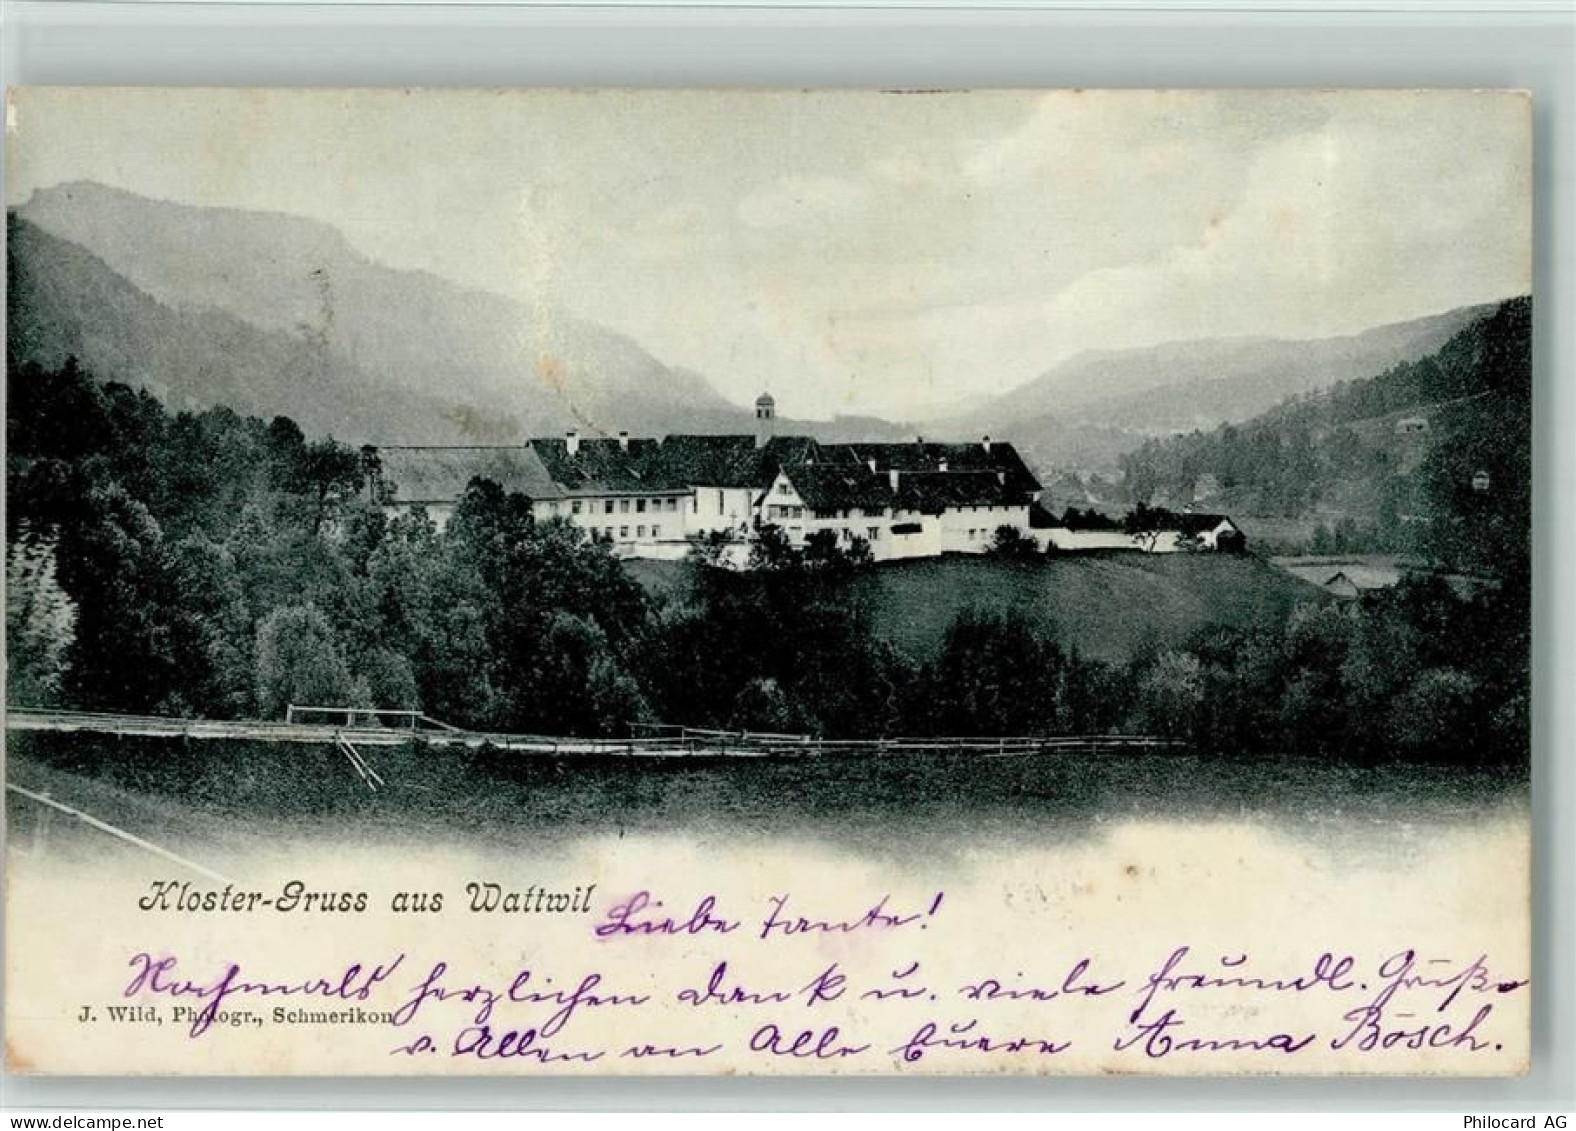 Kloster-Gruss aus Wattwil
Liebe Tante!
Nochmals herzlichen Dank u. viele freundl. Grüße
J. Wild, Photogr., Schmerikon
v. Allen an Alle Euere Anna Bösch.
www.delcampe.net
Philocard AG